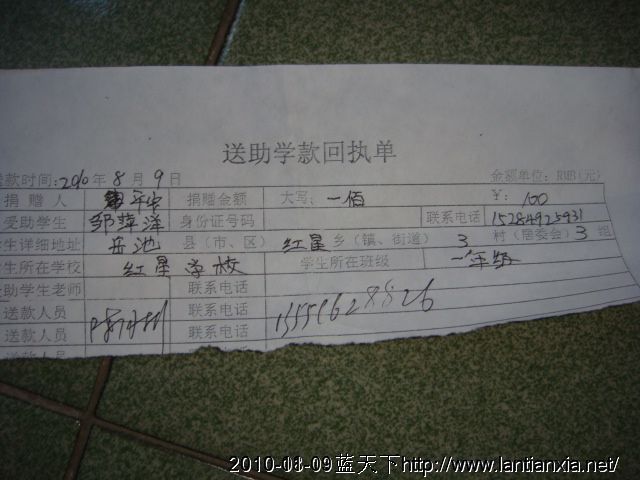 送助学款回执单
送款时间:2010年8月9日 金额单位：RMB(元)
捐赠人 捐赠金额 大写：一佰 ￥：100
受助学生 邹萍泽 身份证号码 联系电话 15284925931
学生详细地址 岳池 县（市、区） 红星 乡（镇、街道） 3 村（居委会）3 组
学生所在学校 红星学校 学生所在班级 一年级
受助学生老师 联系电话
送款人员 联系电话 13551628826
送款人员 联系电话
2010-08-09蓝天下http://www.lantianxia.net/